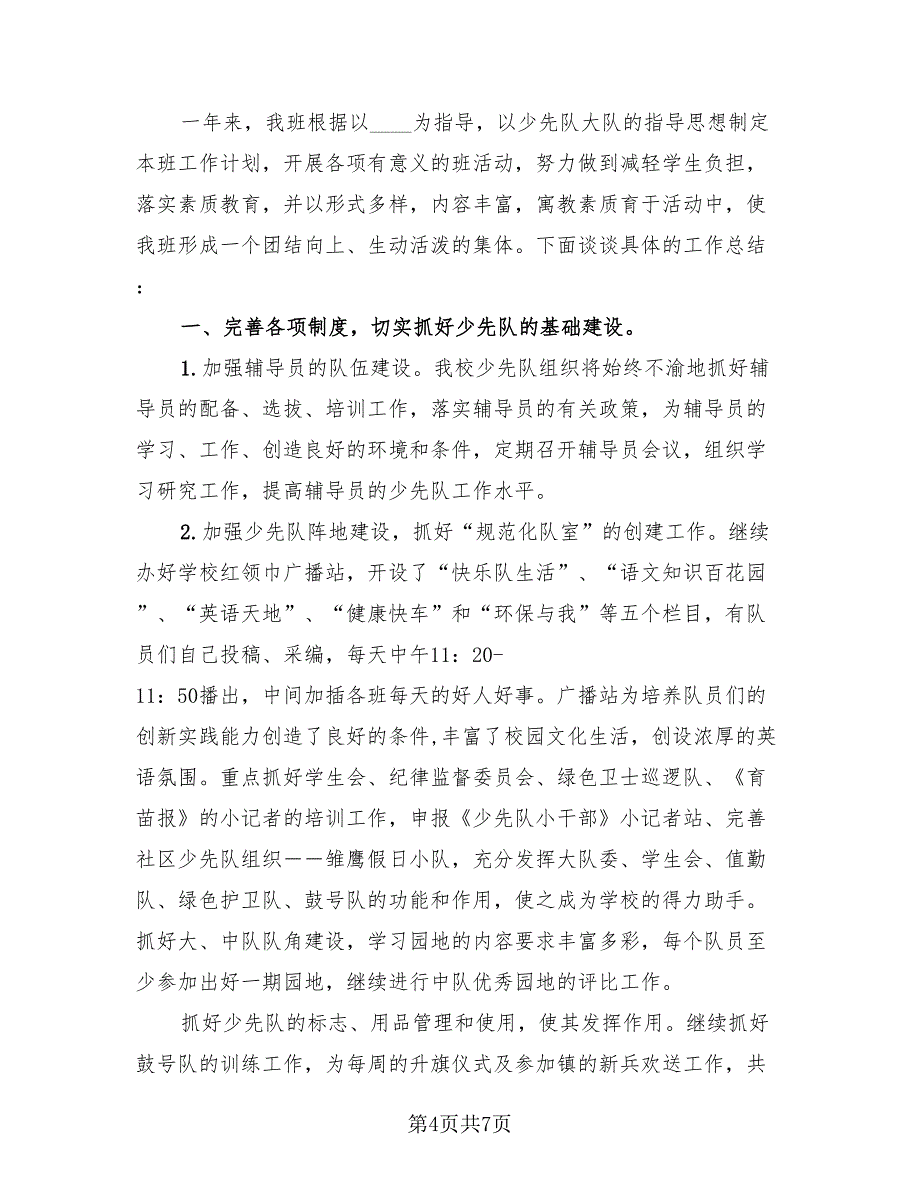 一年来，我班根据以____为指导，以少先队大队的指导思想制定
本班工作计划，开展各项有意义的班活动，努力做到减轻学生负担，
落实素质教育，并以形式多样，内容丰富，寓教素质育于活动中，使
我班形成一个团结向上、生动活泼的集体。下面谈谈具体的工作总结
：
一、完善各项制度，切实抓好少先队的基础建设。
1.加强辅导员的队伍建设。我校少先队组织将始终不渝地抓好辅
导员的配备、选拔、培训工作，落实辅导员的有关政策，为辅导员的
学习、工作、创造良好的环境和条件，定期召开辅导员会议，组织学
习研究工作，提高辅导员的少先队工作水平。
2.加强少先队阵地建设，抓好“规范化队室”的创建工作。继续
办好学校红领巾广播站，开设了“快乐队生活”、“语文知识百花园
”、“英语天地”、“健康快车”和“环保与我”等五个栏目，有队
员们自己投稿、采编，每天中午11：20-
11：50播出，中间加插各班每天的好人好事。广播站为培养队员们的
创新实践能力创造了良好的条件,丰富了校园文化生活，创设浓厚的英
语氛围。重点抓好学生会、纪律监督委员会、绿色卫士巡逻队、《育
苗报》的小记者的培训工作，申报《少先队小干部》小记者站、完善
社区少先队组织——雏鹰假日小队，充分发挥大队委、学生会、值勤
队、绿色护卫队、鼓号队的功能和作用，使之成为学校的得力助手。
抓好大、中队队角建设，学习园地的内容要求丰富多彩，每个队员至
少参加出好一期园地，继续进行中队优秀园地的评比工作。
抓好少先队的标志、用品管理和使用，使其发挥作用。继续抓好
鼓号队的训练工作，为每周的升旗仪式及参加镇的新兵欢送工作，共
第4页共7页